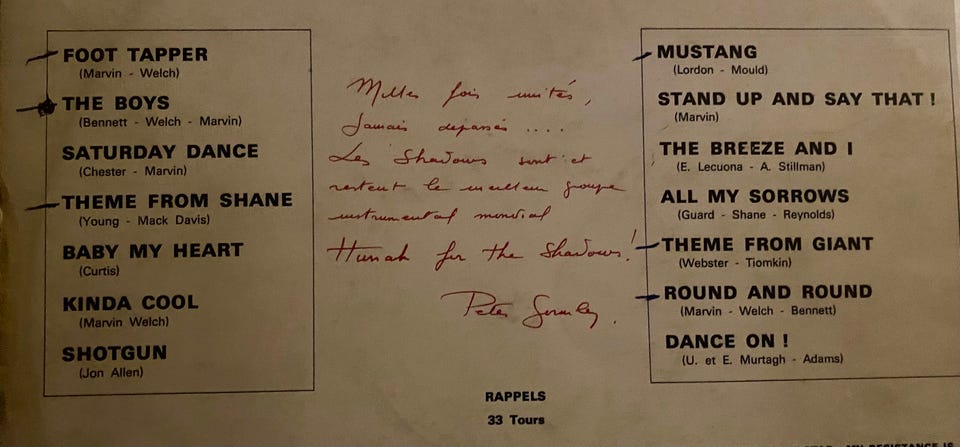 FOOT TAPPER
(Marvin - Welch)
THE BOYS
(Bennett - Welch - Marvin)
SATURDAY DANCE
(Chester - Marvin)
THEME FROM SHANE
(Young - Mack Davis)
BABY MY HEART
(Curtis)
KINDA COOL
(Marvin Welch)
SHOTGUN
(Jon Allen)
Milles fois imités,
Jamais dépassés ....
Les Shadows sont et
restent le meilleur groupe
instrumental mondial
Hurrah for the Shadows!
Peter Gormley.
RAPPELS
33 Tours
MUSTANG
(Lordon - Mould)
STAND UP AND SAY THAT !
(Marvin)
THE BREEZE AND I
(E. Lecuona - A. Stillman)
ALL MY SORROWS
(Guard - Shane - Reynolds)
THEME FROM GIANT
(Webster - Tiomkin)
ROUND AND ROUND
(Marvin - Welch - Bennett)
DANCE ON !
(U. et E. Murtagh - Adams)
MY RESISTANCE IS